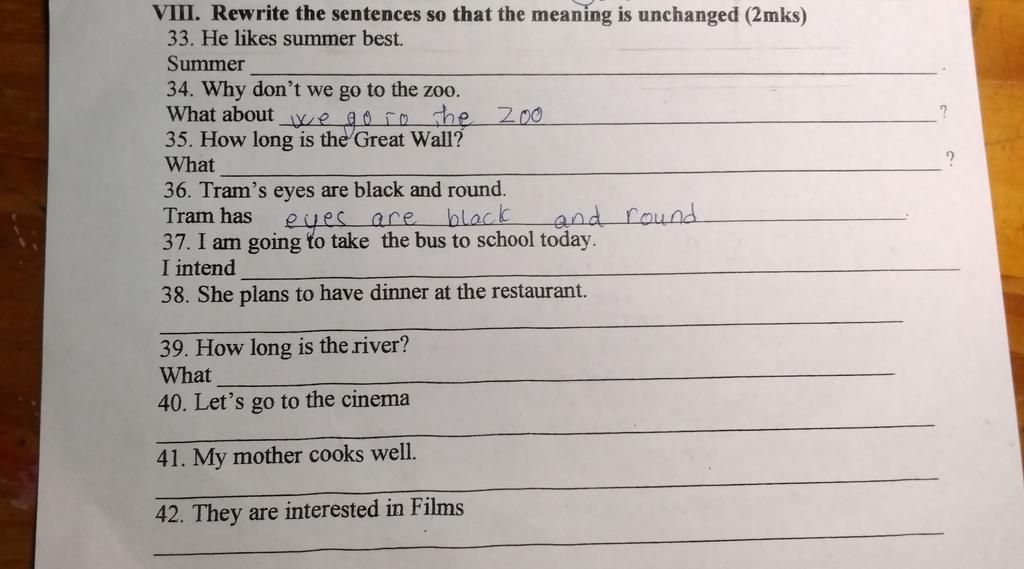 VIII. Rewrite the sentences so that the meaning is unchanged (2mks)
33. He likes summer best.
Summer
34. Why don't we go to the zoo.
What about we go to the zoo ?
35. How long is the Great Wall?
What ?
36. Tram's eyes are black and round.
Tram has eyes are black and round.
37. I am going to take the bus to school today.
I intend
38. She plans to have dinner at the restaurant.
39. How long is the river?
What
40. Let's go to the cinema
41. My mother cooks well.
42. They are interested in Films